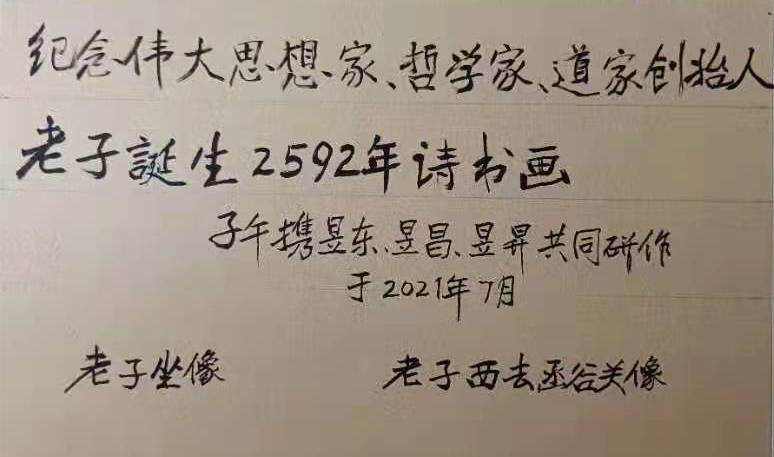 纪念伟大思想家、哲学家、道家创始人
老子誕生2592年诗书画
子午携昱东、昱昌、昱昇共同研作
于2021年7月
老子坐像 老子西去函谷关像